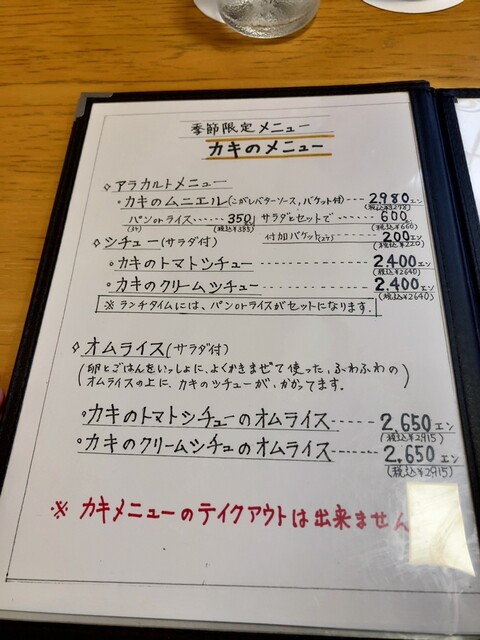 季節限定メニュー
カキのメニュー
◇アラカルトメニュー
・カキのムニエル(こがしバターソース,バケット付)----2,980エン
(税込¥3278)
パンorライス‥‥‥350 サラダとセットで‥‥600エン
(税込¥385) (税込¥660)
◇シチュー(サラダ付) 付加バゲット(2コ)‥‥200エン
(税込¥220)
・カキのトマトシチュー----------2,400エン
(税込¥2640)
・カキのクリームシチュー---------2,400エン
(税込¥2640)
※ランチタイムには、パンorライスがセットになります.
◇オムライス(サラダ付)
(卵とごはんをいっしょに、よくかきまぜて使った,ふわふわの
オムライスの上に、カキのシチューが,かかってます.)
・カキのトマトシチューのオムライス-----2,650エン
(税込¥2915)
・カキのクリームシチュのオムライス-----2,650エン
(税込¥2915)
※ カキメニューのテイクアウトは出来ません